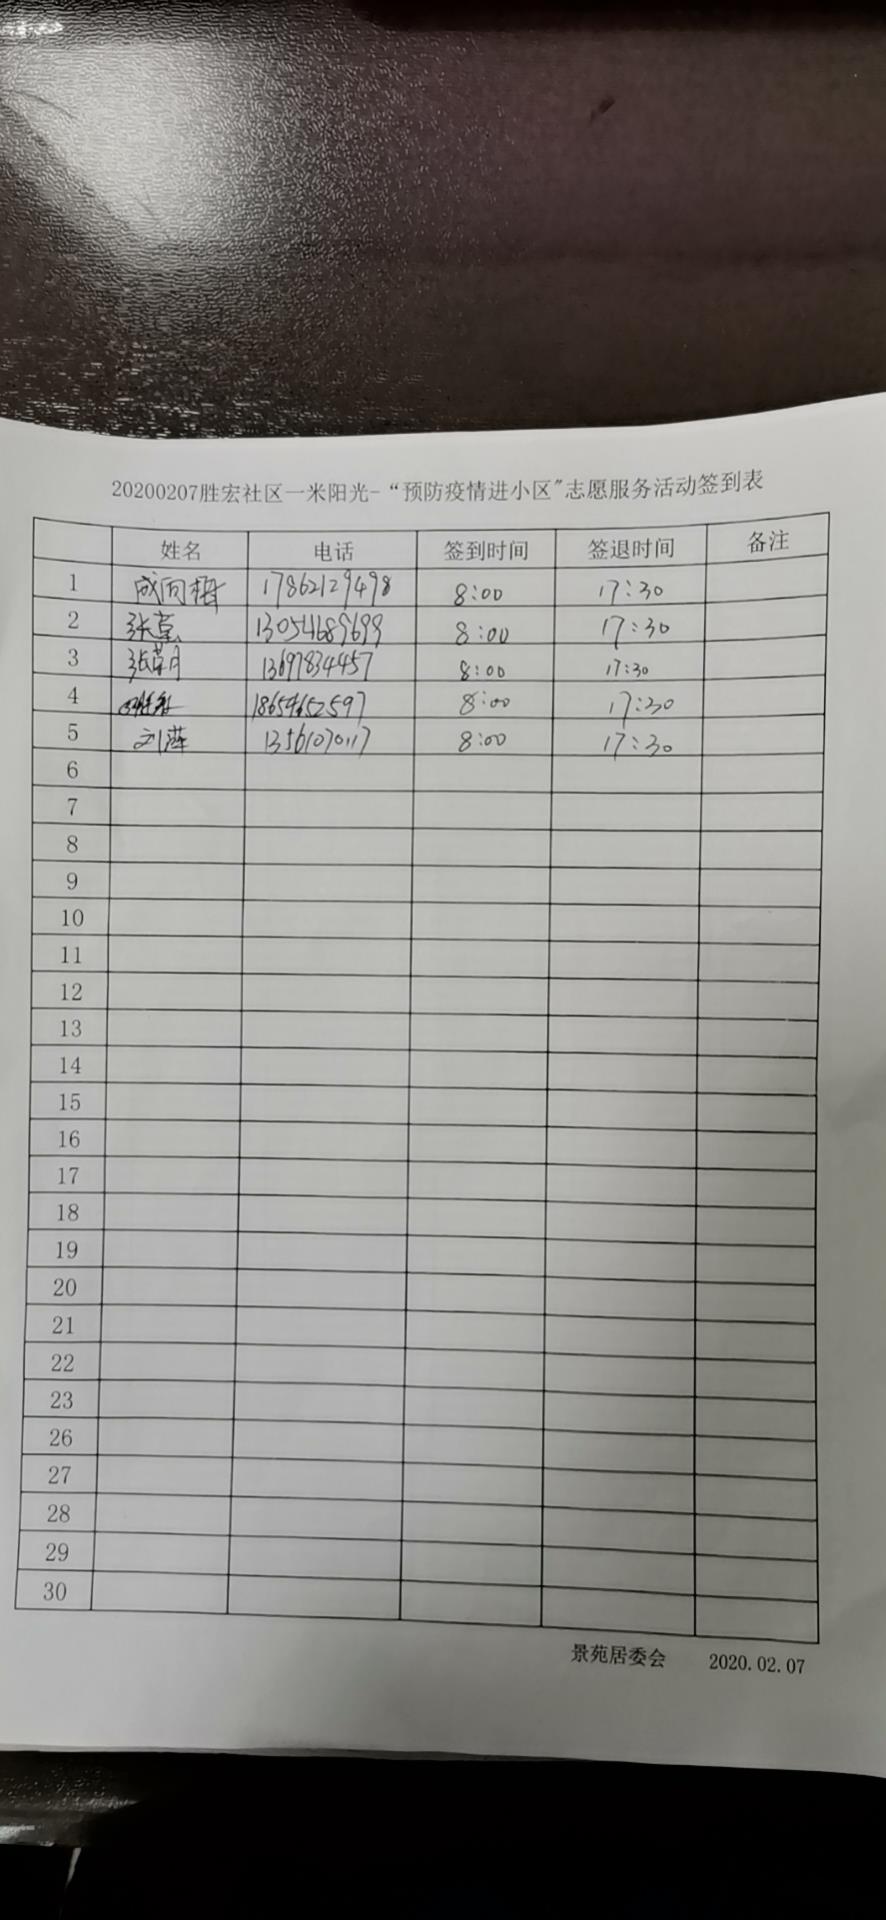 20200207胜宏社区一米阳光-“预防疫情进小区"志愿服务活动签到表
姓名 电话 签到时间 签退时间 备注
1 成向梅 17862129498 8:00 17:30
2 张 13054689699 8:00 17:30
3 张 13697834457 8:00 17:30
4 18654652597 8:00 17:30
5 刘萍 13561070117 8:00 17:30
6
7
8
9
10
11
12
13
14
15
16
17
18
19
20
21
22
23
26
27
28
29
30
景苑居委会 2020.02.07